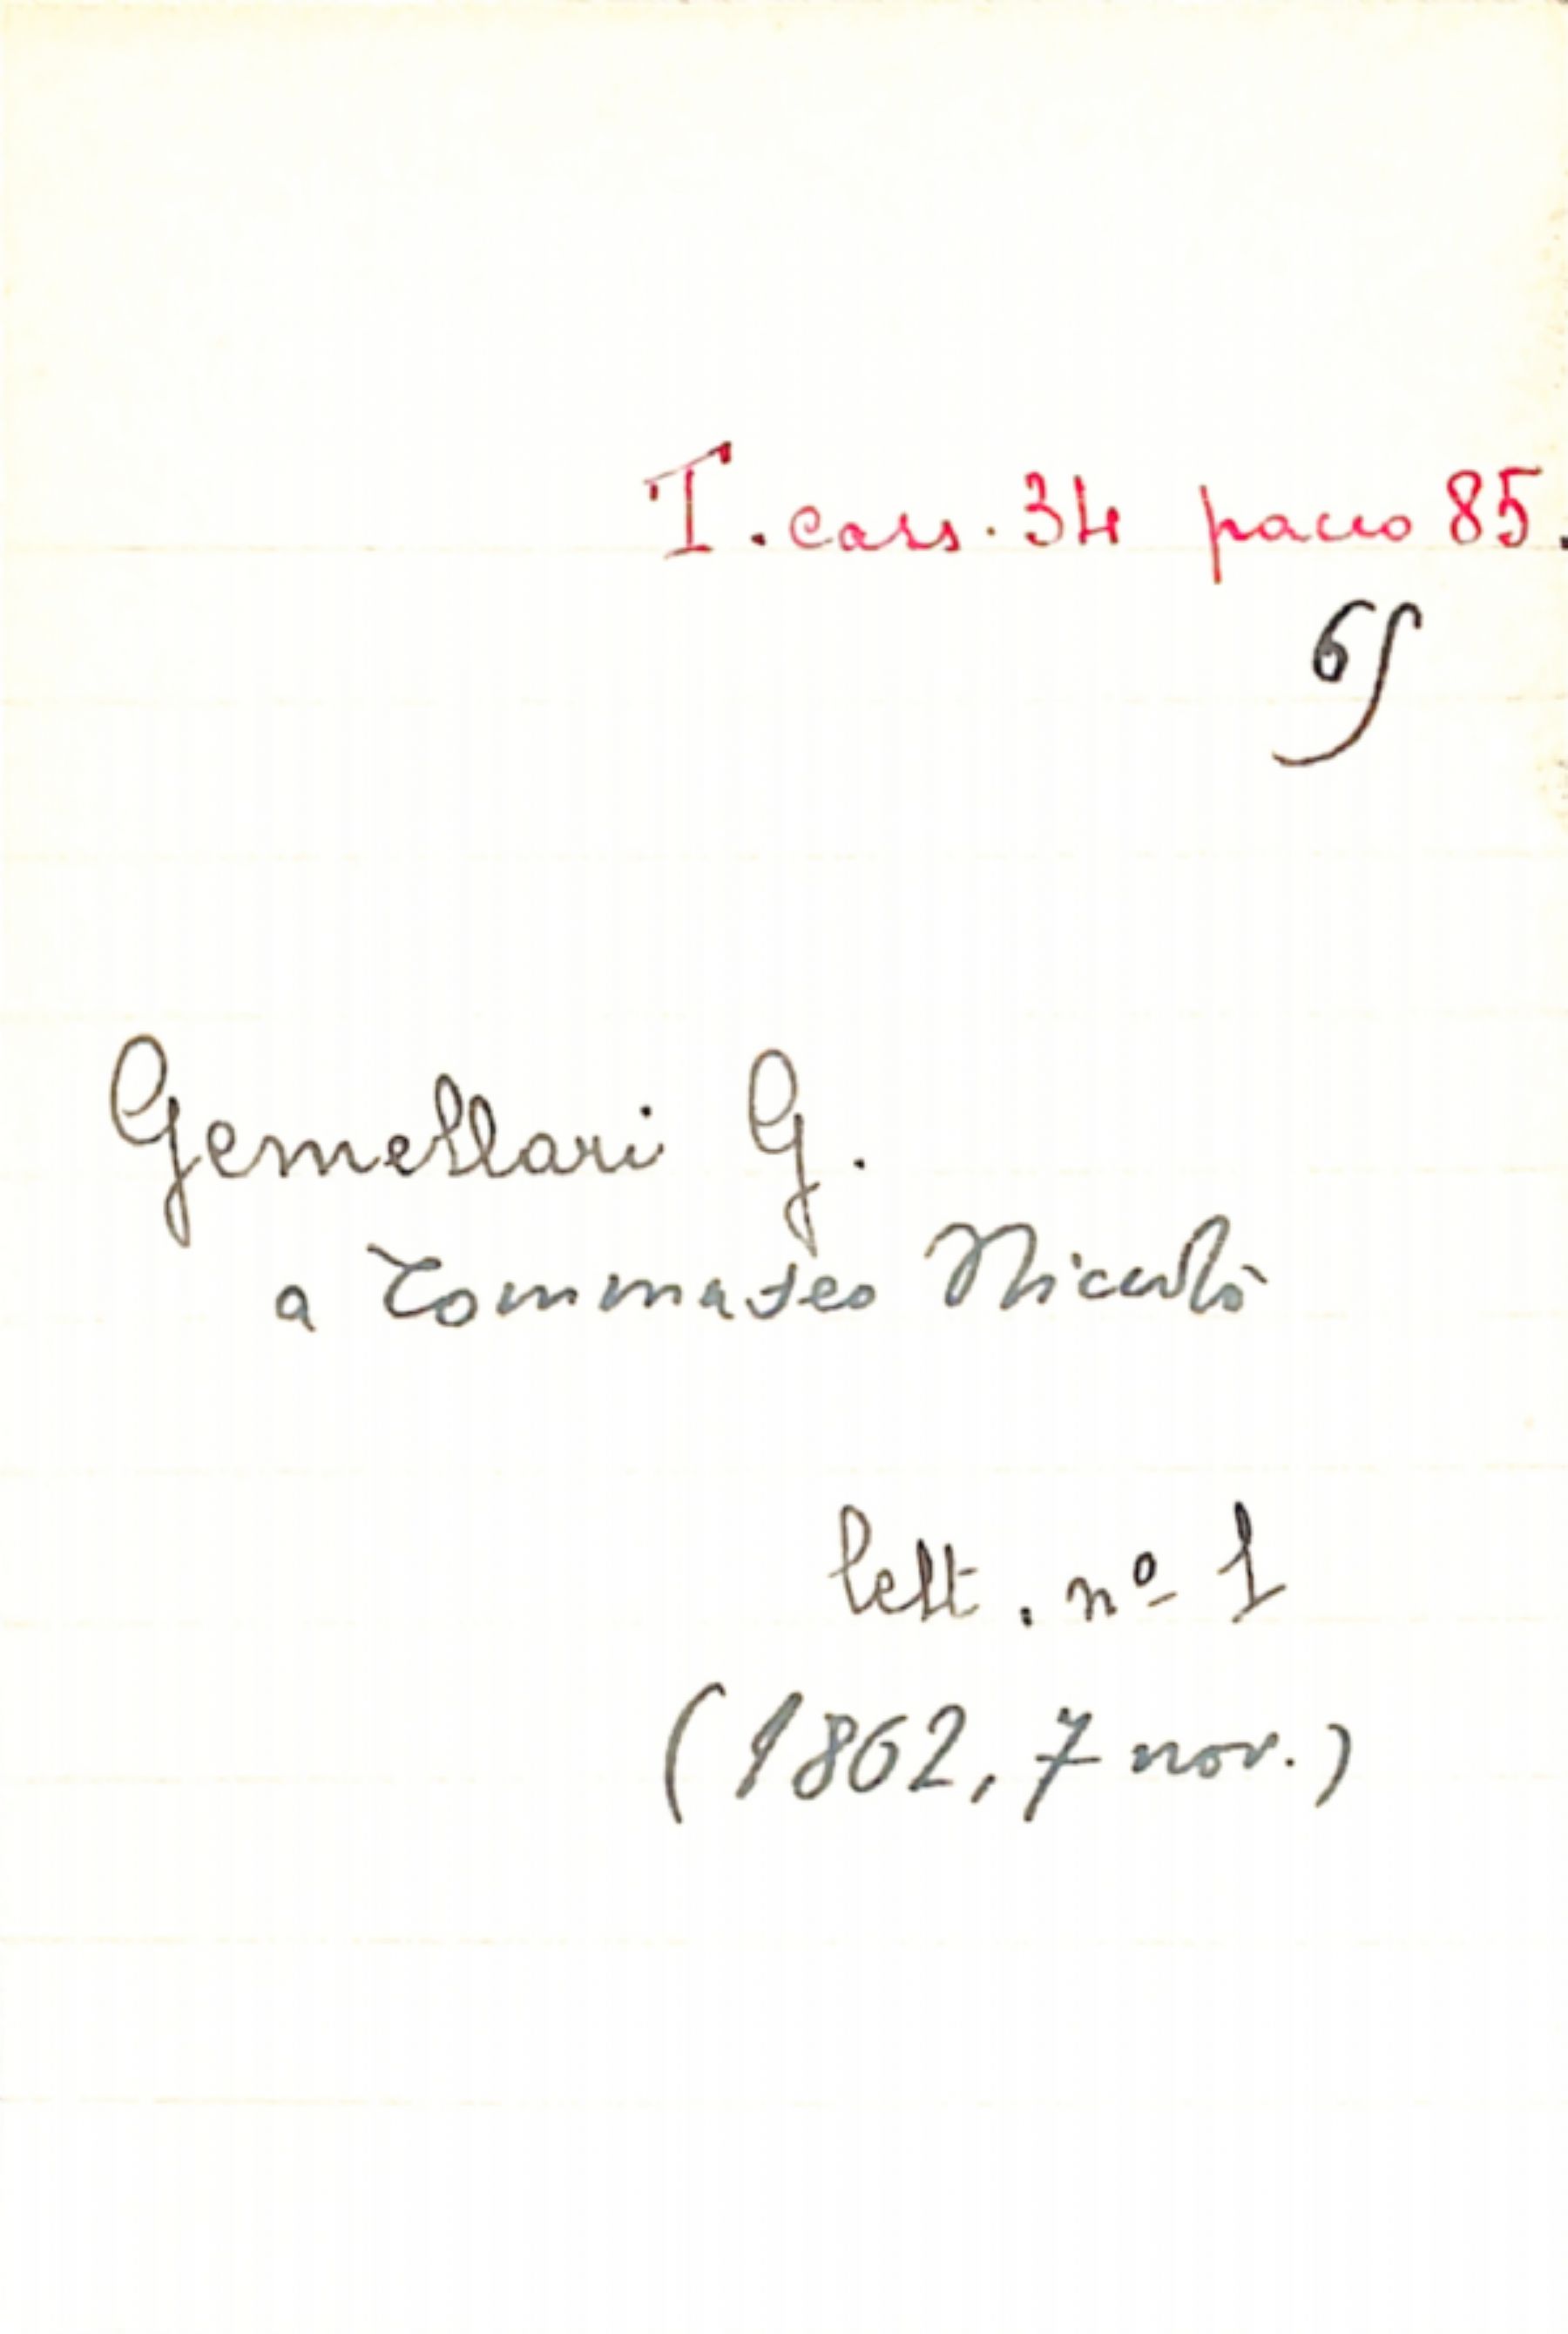 T. cass. 34 pacco 85.
65
Gemellari G.
a Tommaseo Niccolò
lett. nº 1
(1862, 7 nov.)